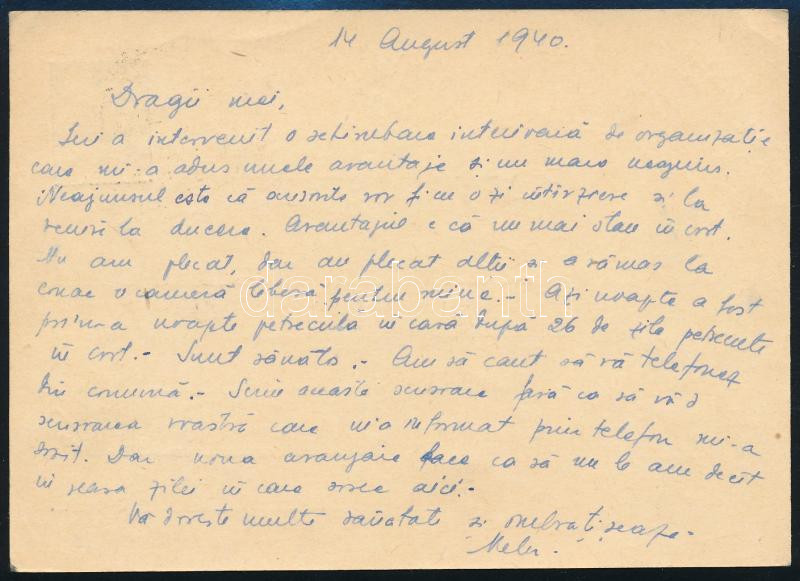 14 August 1940.
Dragii mei,
a intervenit o schimbare de organizație
care mi-a adus unele avantaje și un mare neajuns.
Neajunsul este că vor fi cu o zi întirziere și la
venire la ducere. Avantajul e că nu mai stau în cort.
Nu am plecat, dar au plecat alții și a rămas la
conac o cameră liberă pentru mine.- Azi noapte a fost
prima noapte petrecută în casă după 26 de zile petrecute
în cort.- Sunt sănătos.- Am să caut să vă telefonez
din comună.- Scriu această scrisoare fără ca să văd
scrisoarea voastră care m-a informat prin telefon mi-a
sosit. Dar noua aranjare face ca să nu le am decît
în seara zilei în care sosesc aici.-
Vă dorește multă sănătate și
darabanth